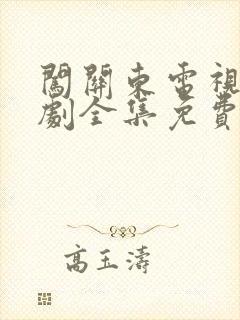 闖關東電視
劇全集免費
高玉濤